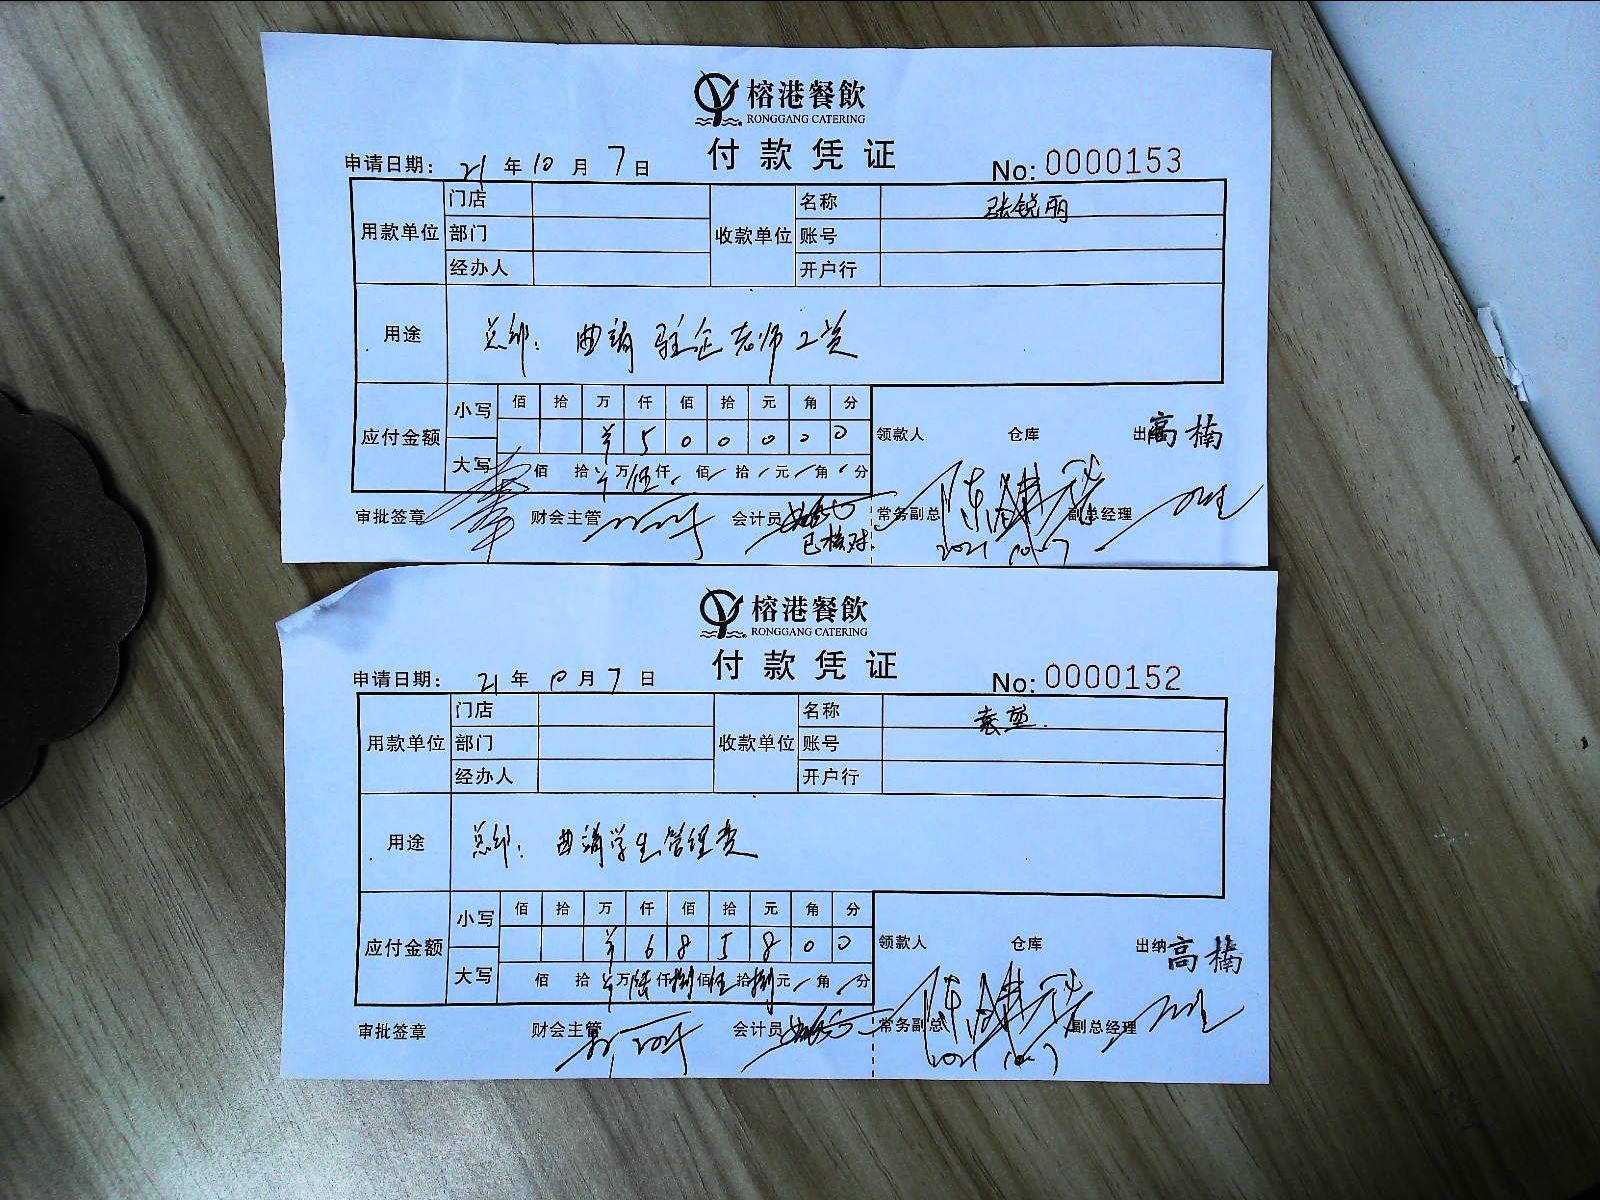 榕港餐飲
RONGGANG CATERING
付款凭证
申请日期: 21 年 10 月 7 日 No: 0000153
用款单位 门店 收款单位 名称 张锐丽
部门 账号
经办人 开户行
用途 总部: 曲靖 驻企老师工资
应付金额 小写 佰 拾 万 仟 佰 拾 元 角 分
¥ 5 0 0 0 0 0
大写 佰 拾 ¥ 万 伍 仟 佰 拾 元 角 分
领款人 仓库 出纳 高楠
审批签章 财会主管 会计员 常务副总 副总经理
已核对
2021.10.7
榕港餐飲
RONGGANG CATERING
付款凭证
申请日期: 21 年 10 月 7 日 No: 0000152
用款单位 门店 收款单位 名称 袁堃.
部门 账号
经办人 开户行
用途 总部: 曲靖学生管理费
应付金额 小写 佰 拾 万 仟 佰 拾 元 角 分
¥ 6 8 5 8 0 0
大写 佰 拾 ¥ 万 陆 仟 捌 佰 伍 拾 捌 元 角 分
领款人 仓库 出纳 高楠
审批签章 财会主管 会计员 常务副总 副总经理
2021.10.7